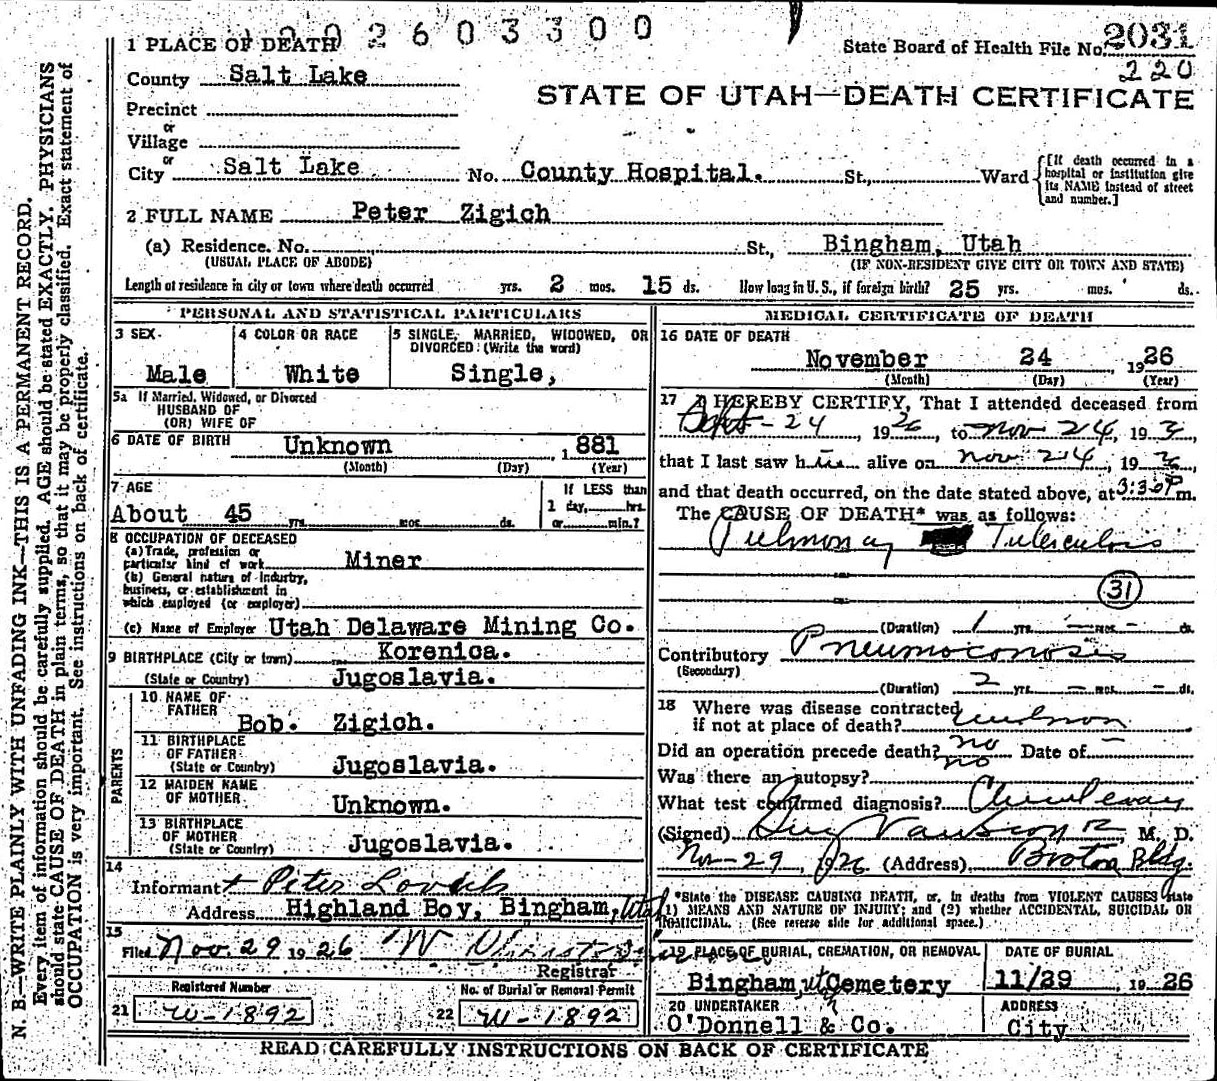 2603300
1 PLACE OF DEATH
State Board of Health File No. 2031
220
County Salt Lake
STATE OF UTAH—DEATH CERTIFICATE
Precinct
or
Village
or
City Salt Lake No. County Hospital. St., Ward
[If death occurred in a hospital or institution give its NAME instead of street and number.]
2 FULL NAME Peter Zigich
(a) Residence. No. St., Bingham, Utah
(USUAL PLACE OF ABODE) (IF NON-RESIDENT GIVE CITY OR TOWN AND STATE)
Length of residence in city or town where death occurred yrs. 2 mos. 15 ds. How long in U. S., if foreign birth? 25 yrs. mos. ds.
PERSONAL AND STATISTICAL PARTICULARS
3 SEX
Male
4 COLOR OR RACE
White
5 SINGLE, MARRIED, WIDOWED, OR
DIVORCED (Write the word)
Single,
5a If Married, Widowed, or Divorced
HUSBAND OF
(OR) WIFE OF
6 DATE OF BIRTH Unknown 1881
(Month) (Day) (Year)
7 AGE
About 45 yrs. mos. ds.
If LESS than
1 day, hrs.
or min.?
8 OCCUPATION OF DECEASED
(a) Trade, profession or
particular kind of work Miner
(b) General nature of Industry,
business, or establishment in
which employed (or employer)
(c) Name of Employer Utah Delaware Mining Co.
9 BIRTHPLACE (City or town) Korenica.
(State or Country) Jugoslavia.
PARENTS
10 NAME OF
FATHER Bob. Zigich.
11 BIRTHPLACE
OF FATHER
(State or Country) Jugoslavia.
12 MAIDEN NAME
OF MOTHER Unknown.
13 BIRTHPLACE
OF MOTHER
(State or Country) Jugoslavia.
14
Informant + Peter
Address Highland Boy, Bingham, Utah
15
Filed Nov. 29 1926 W
Registrar
Registered Number
21 W-1892
No. of Burial or Removal Permit
22 W-1892
MEDICAL CERTIFICATE OF DEATH
16 DATE OF DEATH
November 24 1926
(Month) (Day) (Year)
17 I HEREBY CERTIFY, That I attended deceased from
Sept-24, 1926, to Nov 24, 192
that I last saw h alive on Nov 24, 192
and that death occurred, on the date stated above, at 3:30 P m.
The CAUSE OF DEATH* was as follows:
Pulmonary Tuberculosis
31
(Duration) 1 yrs. — mos. - ds.
Contributory Pneumoconosis
(Secondary)
(Duration) 2 yrs. — mos. - ds.
18 Where was disease contracted
if not at place of death? unknown
Did an operation precede death? no Date of —
Was there an autopsy? no
What test confirmed diagnosis?
(Signed) M. D.
Nov-29, 1926 (Address) Bldg.
*State the DISEASE CAUSING DEATH, or, in deaths from VIOLENT CAUSES state
1) MEANS AND NATURE OF INJURY; and (2) whether ACCIDENTAL, SUICIDAL OR
HOMICIDAL. (See reverse side for additional space.)
19 PLACE OF BURIAL, CREMATION, OR REMOVAL
Bingham, Ut Cemetery
DATE OF BURIAL
11/29 1926
20 UNDERTAKER
O'Donnell & Co.
ADDRESS
City
READ CAREFULLY INSTRUCTIONS ON BACK OF CERTIFICATE
N. B.—WRITE PLAINLY WITH UNFADING INK—THIS IS A PERMANENT RECORD.
Every item of information should be carefully supplied. AGE should be stated EXACTLY. PHYSICIANS
should state CAUSE OF DEATH in plain terms, so that it may be properly classified. Exact statement of
OCCUPATION is very important. See instructions on back of certificate.